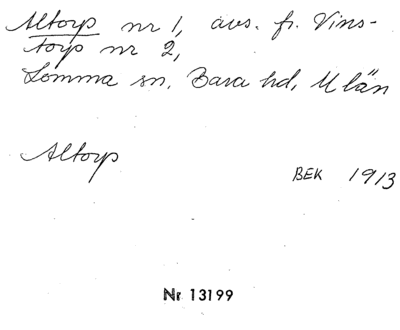 Altorp nr 1, avs. fr. Vins-
torp nr 2,
Lomma sn, Bara hd, M län
Altorp
BEK 1913
Nr 13199